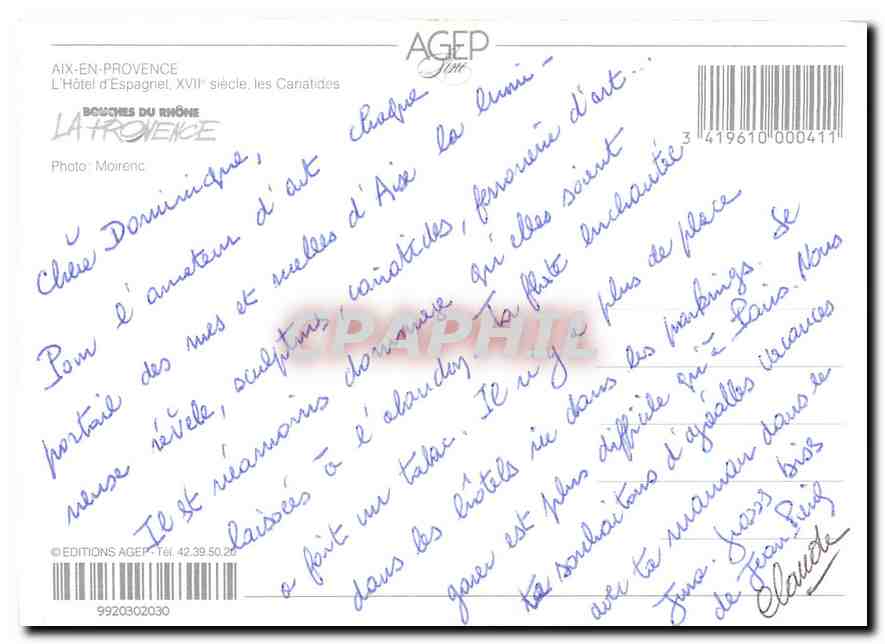 AGEP
Fine
AIX-EN-PROVENCE
L'Hôtel d'Espagnet, XVIIe siècle, les Cariatides
BOUCHES DU RHÔNE
LA PROVENCE
Photo : Moirenc
3 419610 000411
Chère Dominique,
Pour l'amateur d'art chaque
portail des rues et ruelles d'Aix la lumi-
neuse révèle, sculptures, cariatides, ferronnerie d'art...
Il est néanmoins dommage qu'elles soient
laissées à l'abandon. Ta flûte enchantée
a fait un tabac. Il n'y a plus de place
dans les hôtels ni dans les parkings. Se
garer est plus difficile qu'à Paris. Nous
te souhaitons d'agréables vacances
avec ta maman dans le
Jura. Grosses bises
de Jean Pierre
Claude
CPAPHIL
© EDITIONS AGEP - Tél. 42.39.50.20
9920302030